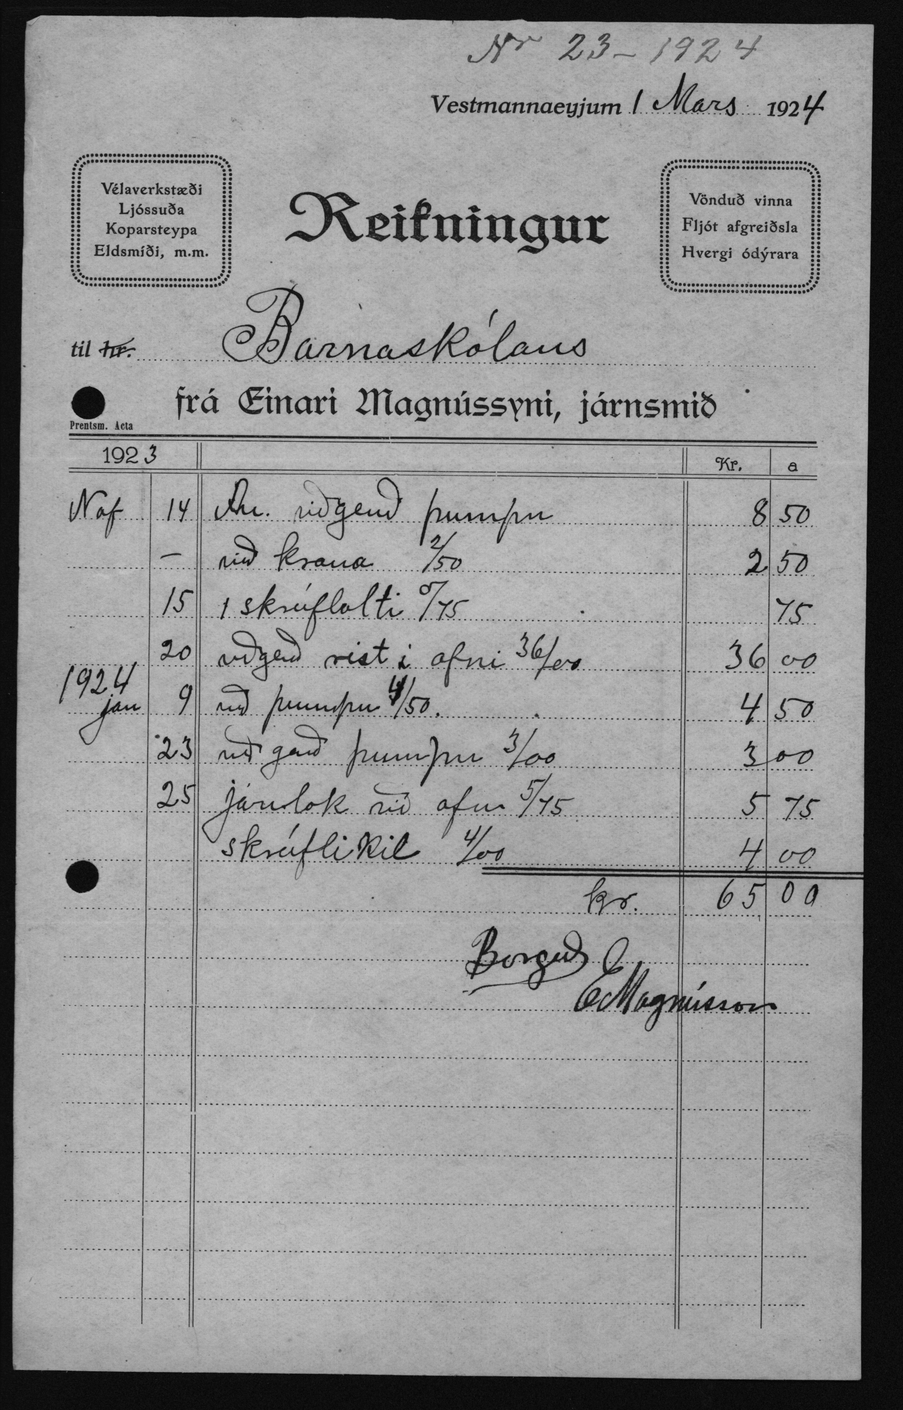 Nr 23 - 1924
Vestmannaeyjum 1 Mars 1924
Vélaverkstæði
Ljóssuða
Koparsteypa
Eldsmíði, m.m.
Reikningur
Vönduð vinna
Fljót afgreiðsla
Hvergi ódýrara
til hr. Barnaskólans
frá Einari Magnússyni, járnsmið
Prentsm. Acta
1923 Kr. a
Nof 14 viðgerð pumpu 8 50
— við krana 2/50 2 50
15 1 skrúfbolti 0/75 75
20 viðgerð rist i ofni 36/00 36 00
1924
jan 9 við pumpu 4/50. 4 50
23 við gerð pumpu 3/00 3 00
25 járnlok við ofn 5/75 5 75
skrúflikil 4/00 4 00
kr. 65 00
Borgað
E Magnússon